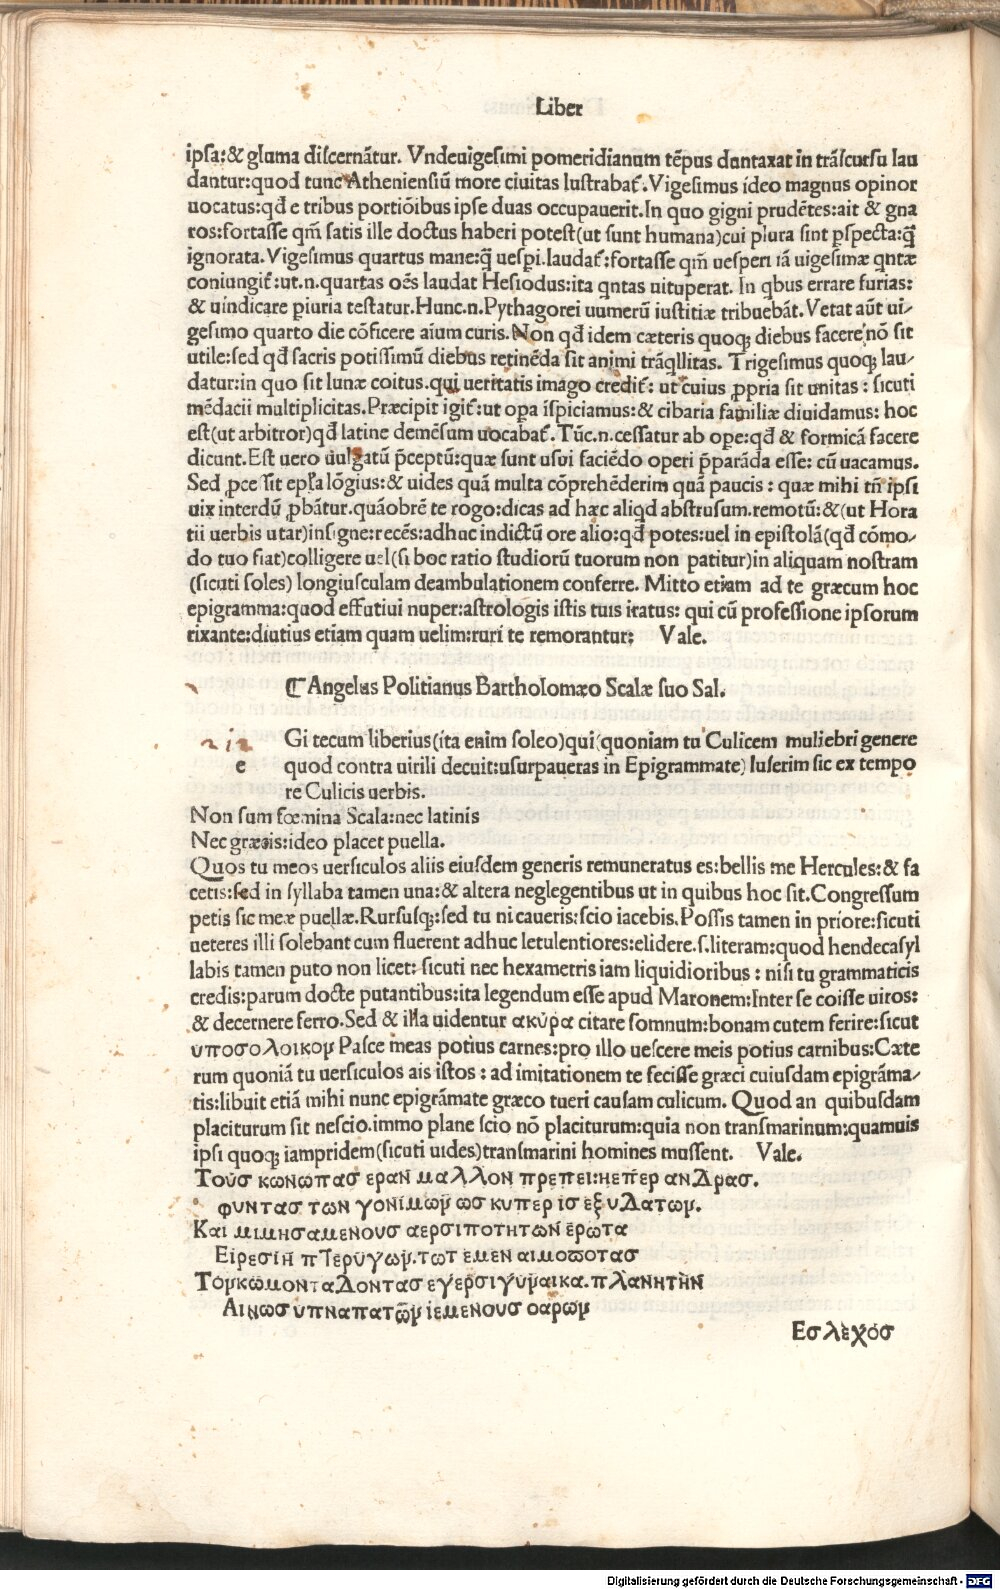 Liber
ipsa:& gluma discernãtur. Vndeuigesimi pomeridianum tẽpus duntaxat in trãscursu lau
dantur:quod tunc Atheniensiũ more ciuitas lustrabat̃. Vigesimus ideo magnus opinor
uocatus:qđ e tribus portiõibus ipse duas occupauerit. In quo gigni prudẽtes:ait & gna
ros:fortasse qm̃ satis ille doctus haberi potest(ut sunt humana)cui plura sint pspecta:q̃
ignorata. Vigesimus quartus mane:q̃ uespi.laudat̃:fortasse qm̃ uesperi iã uigesimæ qntæ
coniungit̃:ut.n.quartas oẽs laudat Hesiodus:ita qntas uituperat. In qbus errare furias:
& uindicare piuria testatur. Hunc.n.Pythagorei uumerũ iustitiæ tribuebãt. Vetat aũt ui⸗
gesimo quarto die cõficere aíum curis. Non qđ idem cæteris quoq; diebus facere nõ sit
utile:sed qđ sacris potissimũ diebus retinẽda sit animi trãqllitas. Trigesimus quoq; lau⸗
datur:in quo sit lunæ coitus.qui ueritatis imago credit̃: ut cuius ꝓpria sit unitas : sicuti
mẽdacii multiplicitas. Præcipit igit̃:ut opa ĩspiciamus:& cibaria familiæ diuidamus: hoc
est(ut arbitror)qđ latine demẽsum uocabat̃. Tũc.n.cessatur ab ope:qđ & formicã facere
dicunt. Est uero uulgatũ p̃ceptũ:quæ sunt usui faciẽdo operi p̃parãda esse: cũ uacamus.
Sed ꝓcessit epl̃a lõgius:& uides quã multa cõprehẽderim quã paucis : quæ mihi tñ ipsi
uix interdũ ꝓbãtur.quãobrẽ te rogo:dicas ad hæc aliqđ abstrusum.remotũ:&(ut Hora
tii uerbis utar)insigne:recẽs:adhuc indictũ ore alio:qđ potes:uel in epistolã(qđ cõmo⸗
do tuo fiat)colligere uel(si hoc ratio studiorũ tuorum non patitur)in aliquam nostram
(sicuti soles) longiusculam deambulationem conferre. Mitto etiam ad te græcum hoc
epigramma:quod effutiui nuper:astrologis istis tuis iratus: qui cũ professione ipsorum
rixante:diutius etiam quam uelim:ruri te remorantur; Vale.
⸿ Angelus Politianus Bartholomæo Scalæ suo Sal.
e Gi tecum liberius(ita enim soleo)qui(quoniam tu Culicem muliebri genere
quod contra uirili decuit:usurpaueras in Epigrammate) luserim sic ex tempo
re Culicis uerbis.
Non sum fœmina Scala:nec latinis
Nec græcis:ideo placet puella.
Quos tu meos uersiculos aliis eiusdem generis remuneratus es:bellis me Hercules:& fa
cetis:sed in syllaba tamen una:& altera neglegentibus ut in quibus hoc sit. Congressum
petis sic meæ puellæ. Rursusq;:sed tu ni caueris:scio iacebis. Possis tamen in priore:sicuti
ueteres illi solebant cum fluerent adhuc letulentiores:elidere.s.literam:quod hendecasyl
labis tamen puto non licet: sicuti nec hexametris iam liquidioribus : nisi tu grammaticis
credis:parum docte putantibus:ita legendum esse apud Maronem:Inter se coisse uiros:
& decernere ferro. Sed & illa uidentur ακύρα citare somnum:bonam cutem ferire:sicut
υποσολοικον Pasce meas potius carnes:pro illo uescere meis potius carnibus:Cæte
rum quoniã tu uersiculos ais istos : ad imitationem te fecisse græci cuiusdam epigrãma⸗
tis:libuit etiã mihi nunc epigrãmate græco tueri causam culicum. Quod an quibusdam
placiturum sit nescio.immo plane scio nõ placiturum:quia non transmarinum:quamuis
ipsi quoq; iampridem(sicuti uides)transmarini homines mussent. Vale.
Τούσ κωνωπασ εραν μαλλον πρεπει:ηέπερ ανΔρασ.
φυντασ των γονίμων ωσ κυπερ ισ εξυΔατων.
Και μιμησαμενουσ αερσιποτητων έρωτα
Ειρεσίη πΤερύγων.τωτ εμεν αιμοποτασ
Τον κωμονταΔοντασ εγερσιγυναικα.πλανητην
Αινωσ υπναπατων ιεμενουσ οαρων
Εσ λεχόσ
Digitalisierung gefördert durch die Deutsche Forschungsgemeinschaft - DFG